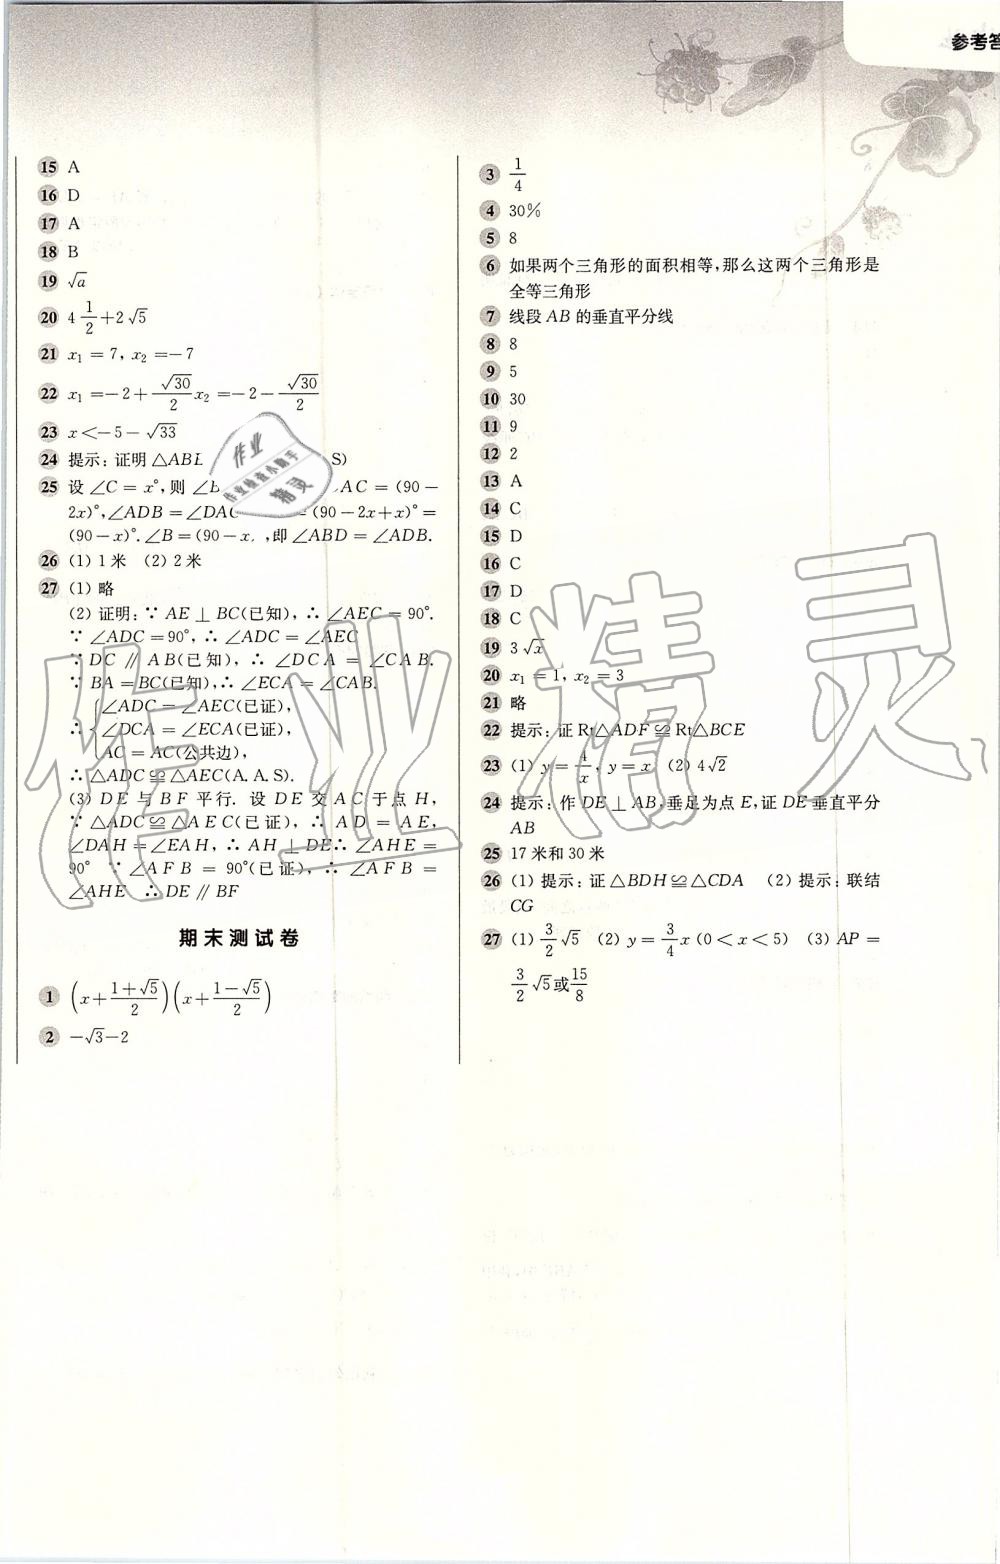 参考答
15 A
16 D
17 A
18 B
19 √a
20 4 1/2+2√5
21 x₁=7, x₂=-7
22 x₁=-2+√30/2 x₂=-2-√30/2
23 x<-5-√33
24 提示:证明△ABE S)
25 设∠C=x°,则∠B AC=(90-
2x)°,∠ADB=∠DAC (90-2x+x)°=
(90-x)°.∠B=(90-x ,即∠ABD=∠ADB.
26 (1) 1米 (2) 2米
27 (1) 略
(2) 证明:∵ AE⊥BC(已知),∴ ∠AEC=90°.
∵ ∠ADC=90°,∴ ∠ADC=∠AEC
∵ DC∥AB(已知),∴ ∠DCA=∠CAB.
∵ BA=BC(已知),∴ ∠ECA=∠CAB.
∠ADC=∠AEC(已证),
∴ ∠DCA=∠ECA(已证),
AC=AC(公共边),
∴ △ADC≌△AEC(A.A.S).
(3) DE与BF平行. 设DE交AC于点H,
∵ △ADC≌△AEC(已证),∴ AD=AE,
∠DAH=∠EAH,∴ AH⊥DE∴ ∠AHE=
90° ∵ ∠AFB=90°(已证),∴ ∠AFB=
∠AHE ∴ DE∥BF
期末测试卷
1 (x+(1+√5)/2)(x+(1-√5)/2)
2 -√3-2
3 1/4
4 30%
5 8
6 如果两个三角形的面积相等,那么这两个三角形是
全等三角形
7 线段AB的垂直平分线
8 8
9 5
10 30
11 9
12 2
13 A
14 C
15 D
16 C
17 D
18 C
19 3√x
20 x₁=1, x₂=3
21 略
22 提示:证Rt△ADF≌Rt△BCE
23 (1) y=4/x, y=x (2) 4√2
24 提示:作DE⊥AB,垂足为点E,证DE垂直平分
AB
25 17米和30米
26 (1) 提示:证△BDH≌△CDA (2) 提示:联结
CG
27 (1) 3/2√5 (2) y=3/4x (0<x<5) (3) AP=
3/2√5或15/8
作业
作业检查小助手
精灵
作业精灵